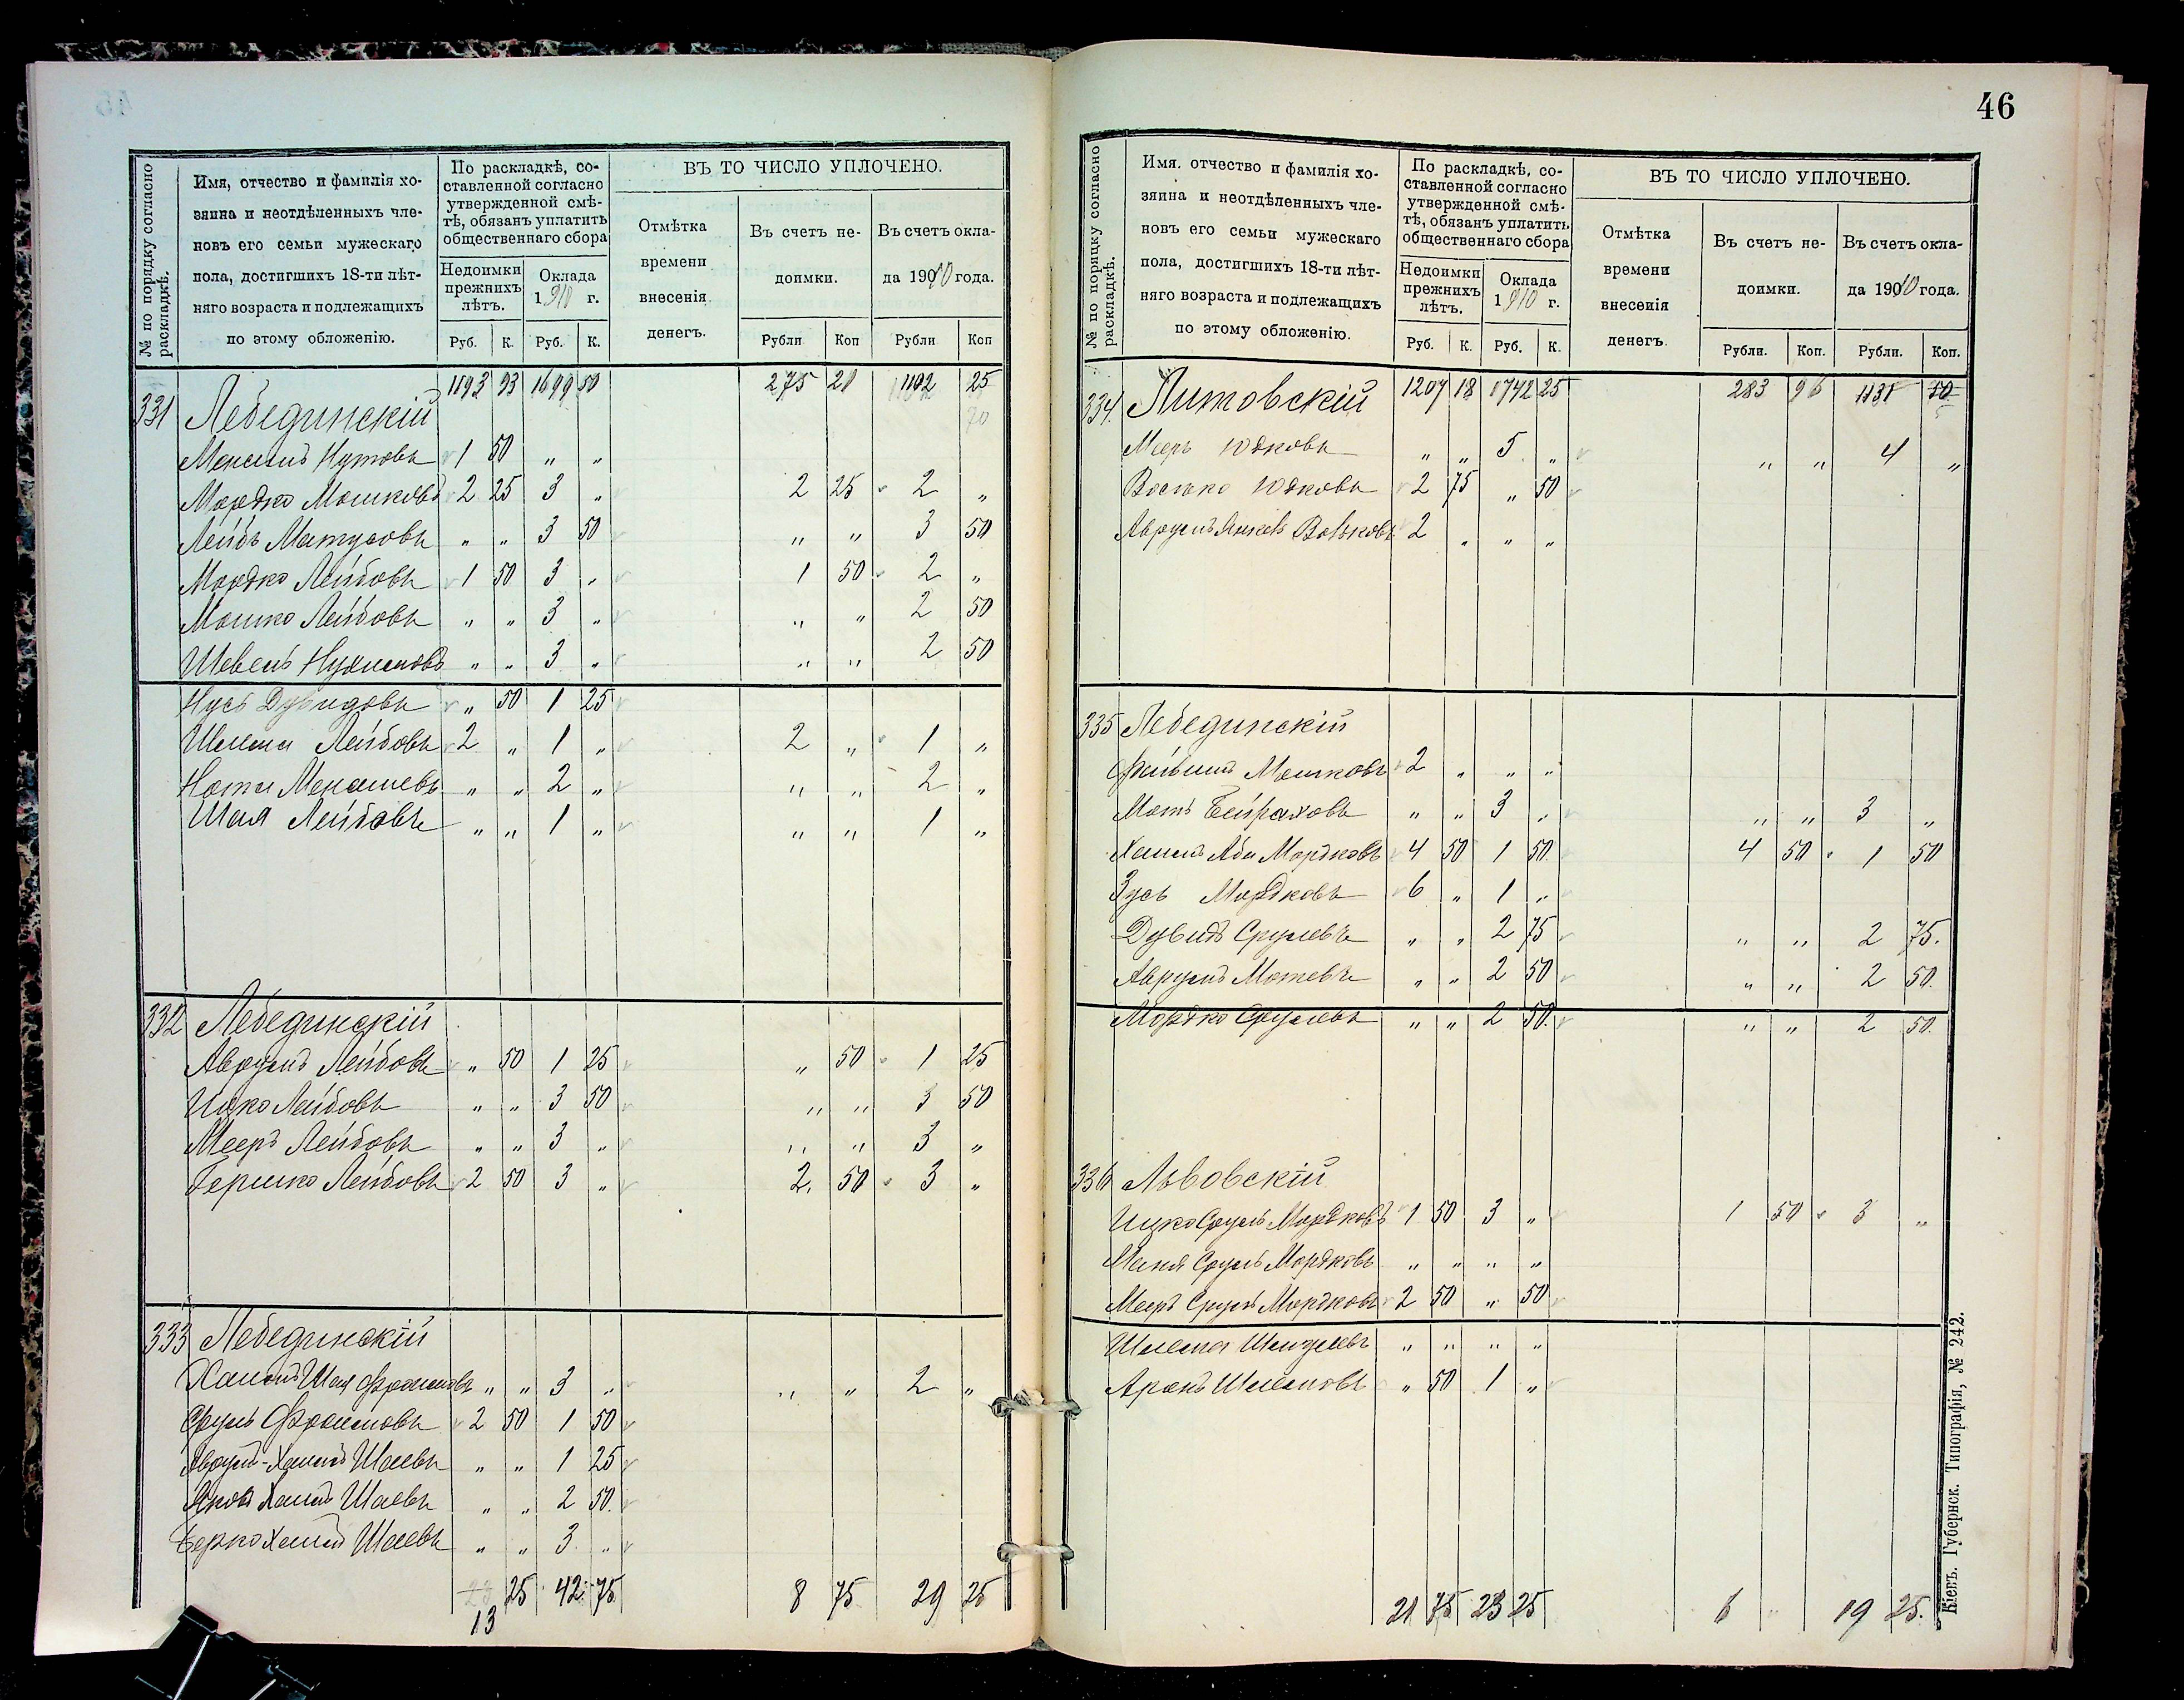 46
№ по порядку согласно раскладкѣ.
Имя, отчество и фамилія хо-
зяина и неотдѣленныхъ чле-
новъ его семьи мужескаго
пола, достигшихъ 18-ти лѣт-
няго возраста и подлежащихъ
по этому обложенію.
По раскладкѣ, со-
ставленной согласно
утвержденной смѣ-
тѣ, обязанъ уплатить
общественнаго сбора
Недоимки
прежнихъ
лѣтъ.
Оклада
1910 г.
ВЪ ТО ЧИСЛО УПЛОЧЕНО.
Отмѣтка
времени
внесенія
денегъ.
Въ счетъ не-
доимки.
Въ счетъ окла-
да 1910 года.
Руб. К. Руб. К. Рубли Коп Рубли Коп
1193 93 1699 50 275 21 1102 25
331 Лебединскій 70
Менашъ Нутовъ 1 50 „ „
Мордко Мошковъ 2 25 3 „ 2 25 2 „
Лейбъ Матусовъ „ „ 3 50 „ „ 3 50
Мордко Лейбовъ 1 50 3 „ 1 50 2 „
Мошко Лейбовъ „ „ 3 „ „ „ 2 50
Шевель Нухимовъ „ „ 3 „ „ „ 2 50
Нусъ Дувидовъ „ 50 1 25
Шлема Лейбовъ 2 „ 1 „ 2 „ 1 „
Нота Менашевъ „ „ 2 „ „ „ 2 „
Шая Лейбовъ „ „ 1 „ „ „ 1 „
332 Лебединскій
Аврумъ Лейбовъ „ 50 1 25 „ 50 1 25
Ицко Лейбовъ „ „ 3 50 „ „ 3 50
Мееръ Лейбовъ „ „ 3 „ „ „ 3 „
Гершко Лейбовъ 2 50 3 „ 2. 50 3 „
333 Лебединскій
Хаимъ Шая Фроимовъ „ „ 3 „ „ „ 2 „
Сруль Фроимовъ 2 50 1 50
Аврумъ-Хаимъ Шаевъ „ „ 1 25
Яковъ Хаимъ Шаевъ „ „ 2 50.
Берко Хаимъ Шаевъ „ „ 3 „
23 25 42 75 8 75 29 25
13
№ по порядку согласно раскладкѣ.
Имя, отчество и фамилія хо-
зяина и неотдѣленныхъ чле-
новъ его семьи мужескаго
пола, достигшихъ 18-ти лѣт-
няго возраста и подлежащихъ
по этому обложенію.
По раскладкѣ, со-
ставленной согласно
утвержденной смѣ-
тѣ, обязанъ уплатить
общественнаго сбора
Недоимки
прежнихъ
лѣтъ.
Оклада
1910 г.
ВЪ ТО ЧИСЛО УПЛОЧЕНО.
Отмѣтка
времени
внесенія
денегъ.
Въ счетъ не-
доимки.
Въ счетъ окла-
да 1910 года.
Руб. К. Руб. К. Рубли. Коп. Рубли. Коп.
334. Литовскій 1207 18 1742 25 283 96 1131 50
Мееръ Юдковъ „ „ 5 „ „ „ 4 „
Воська Юдковъ 2 75 „ 50
Аврумъ Янкель Вольковъ 2 „ „ „
335 Лебединскій
Фейвишъ Мошковъ 2 „ „ „
Мотъ Бейраховъ „ „ 3 „ „ „ 3 „
Хаимъ Аба Мордковъ 4 50 1 50. 4 50 1 50
Зусь Мордковъ 6 „ 1 „
Дувидъ Срулевъ „ „ 2 75 „ „ 2 75.
Аврумъ Мотевъ „ „ 2 50 „ „ 2 50.
Мордко Срулевъ „ „ 2 50. „ „ 2 50.
336 Львовскій
Ицко Сруль Мордковъ 1 50 3 „ 1 50 3 „
Маня Сруль Мордковъ „ „ „ „
Мееръ Сруль Мордковъ 2 50 „ 50
Шлема Шмулевъ „ „ „ „
Аронъ Шлемовъ „ 50 1 „
21 75 23 25 6 „ 19 25.
Кіевъ. Губернск. Типографія, № 242.